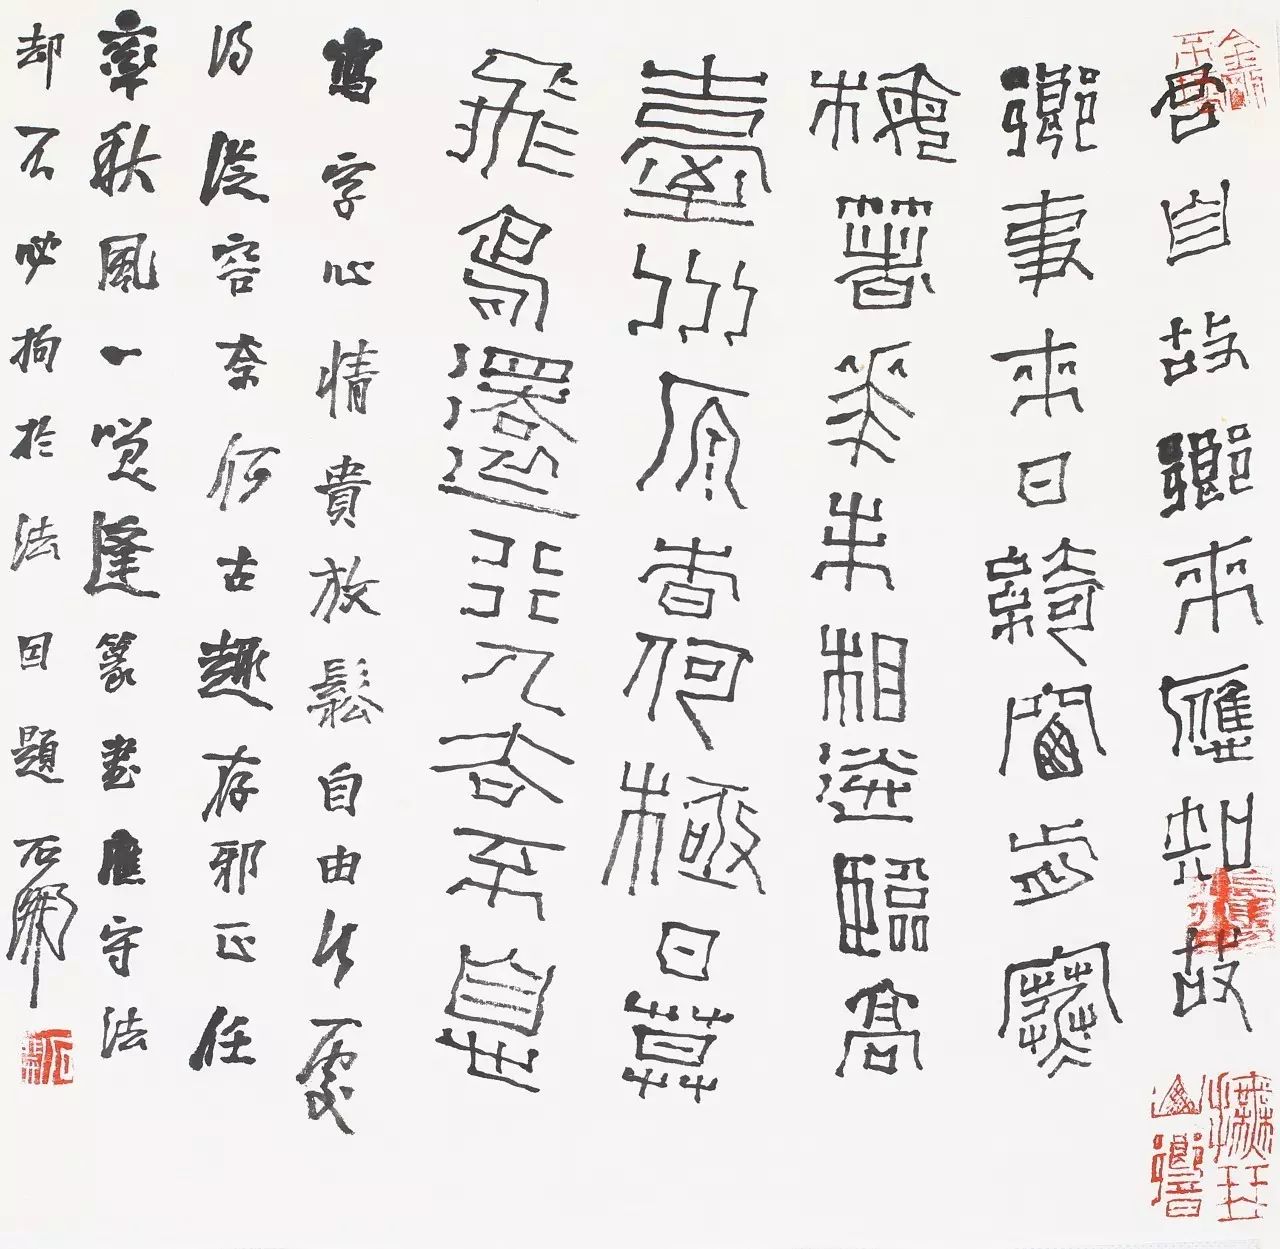 君自故鄉來應知故
鄉事來日綺窗前寒
梅著花未相送臨高
臺川原杳何極日莫
飛鳥還行人去不息
寫字心情貴放鬆自由行處
得從容奈何古趣存邪正任
率秋風一咲逢篆書應守法
却不必拘於法因題 石開